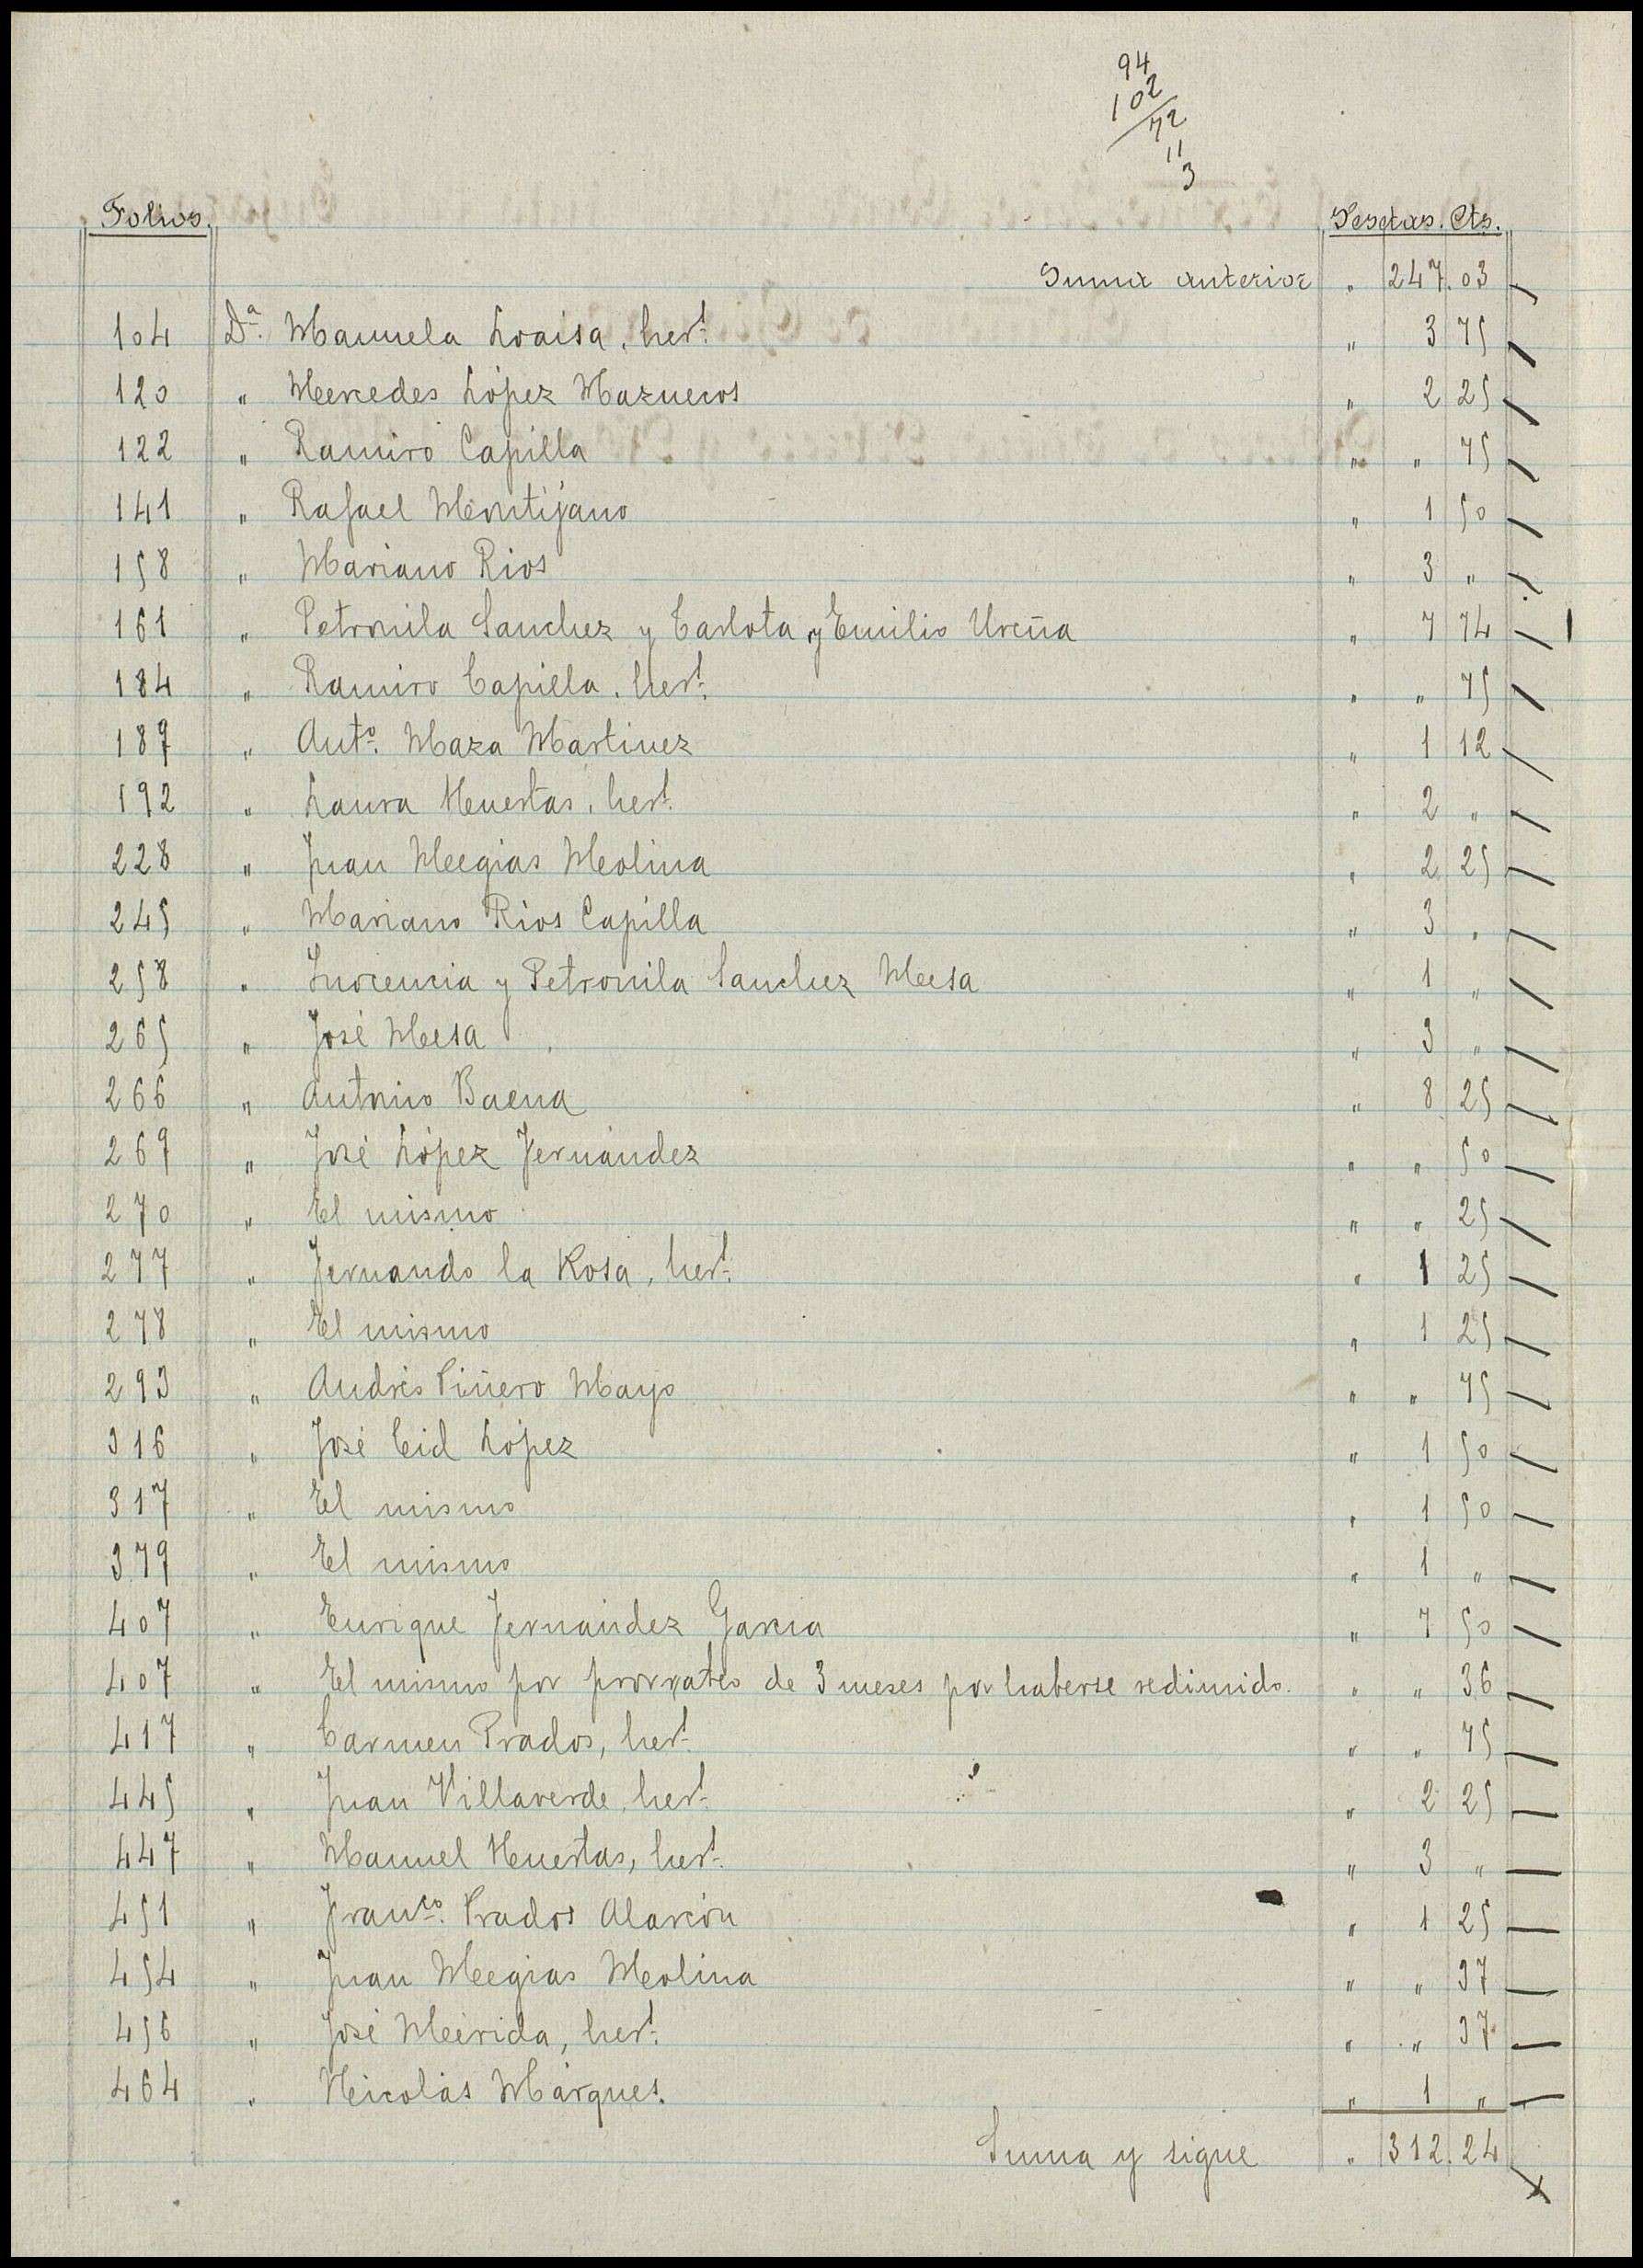 94
102
72
11
3
Folios. Pesetas. Cts.
Suma anterior " 247.03
104 Dª Manuela Loaisa, herᵈ " 3 75
120 " Mercedes López Mazuecos " 2 25
122 " Ramiro Capilla " " 75
141 " Rafael Montijano " 1 50
158 " Mariano Rios " 3 "
161 " Petronila Sanchez y Carlota y Emilio Ureña " 7 74
184 " Ramiro Capilla, herᵈ " " 75
187 " Antº. Maza Martinez " 1 12
192 " Laura Huertas, herᵈ " 2 "
228 " Juan Megias Molina " 2 25
245 " Mariano Rios Capilla " 3 "
258 " Inocencia y Petronila Sanchez Mesa " 1 "
265 " José Mesa " 3 "
266 " Antonio Baena " 8 25
267 " José López Fernández " " 50
270 " El mismo " " 25
277 " Fernando la Rosa, herᵈ " 1 25
278 " El mismo " 1 25
293 " Andrés Piñero Mayo " " 75
316 " José Cid López " 1 50
317 " El mismo " 1 50
379 " El mismo " 1 "
407 " Enrique Fernández Garcia " 7 50
407 " El mismo por prorrateo de 3 meses por haberse redimido. " " 36
417 " Carmen Prados, herᵈ " " 75
445 " Juan Villaverde, herᵈ " 2 25
447 " Manuel Huertas, herᵈ " 3 "
451 " Franᶜᵒ. Prados Alarcón " 1 25
454 " Juan Megias Molina " " 37
456 " José Mérida, herᵈ " " 37
464 " Nicolás Márques. " 1 "
Suma y sigue " 312.24